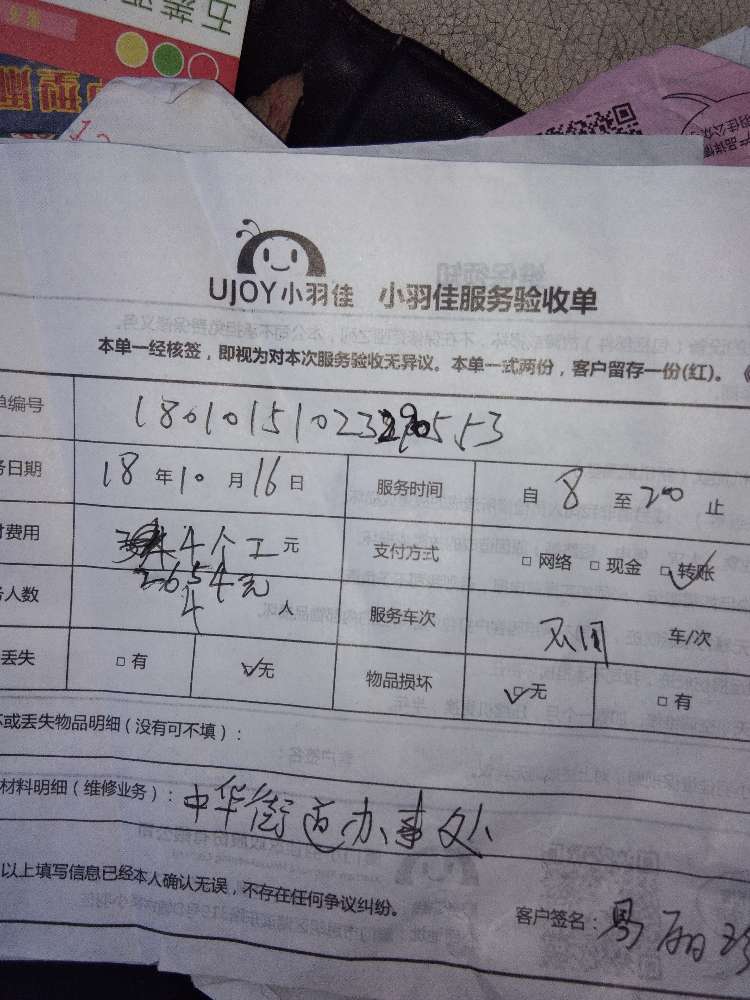 UJOY小羽佳 小羽佳服务验收单
本单一经核签，即视为对本次服务验收无异议。本单一式两份，客户留存一份(红)。
单编号
务日期 18 年 10 月 16 日 服务时间 自 8 至 200 止
付费用 4个工 元 支付方式 □ 网络 □ 现金 □ 转账
2654元
务人数 4 人 服务车次 不用 车/次
丢失 □ 有 □ 无 物品损坏 □ 无 □ 有
坏或丢失物品明细（没有可不填）：
材料明细（维修业务）： 中华街道办事处
以上填写信息已经本人确认无误，不存在任何争议纠纷。
客户签名：